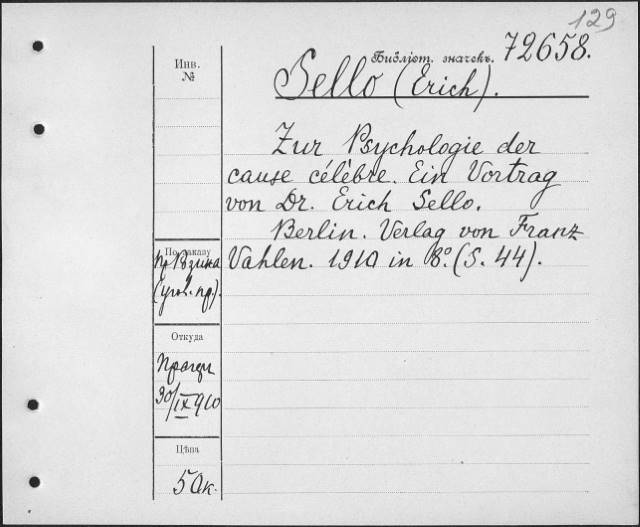 129
Библіот. значекъ. 72658.
Инв.
№
Sello (Erich).
Zur Psychologie der
cause célèbre. Ein Vortrag
von Dr. Erich Sello.
Berlin. Verlag von Franz
Vahlen. 1910 in 8º. (S. 44).
По заказу
(угол. пр.).
Откуда
30/IX 910
Цѣна
50к.